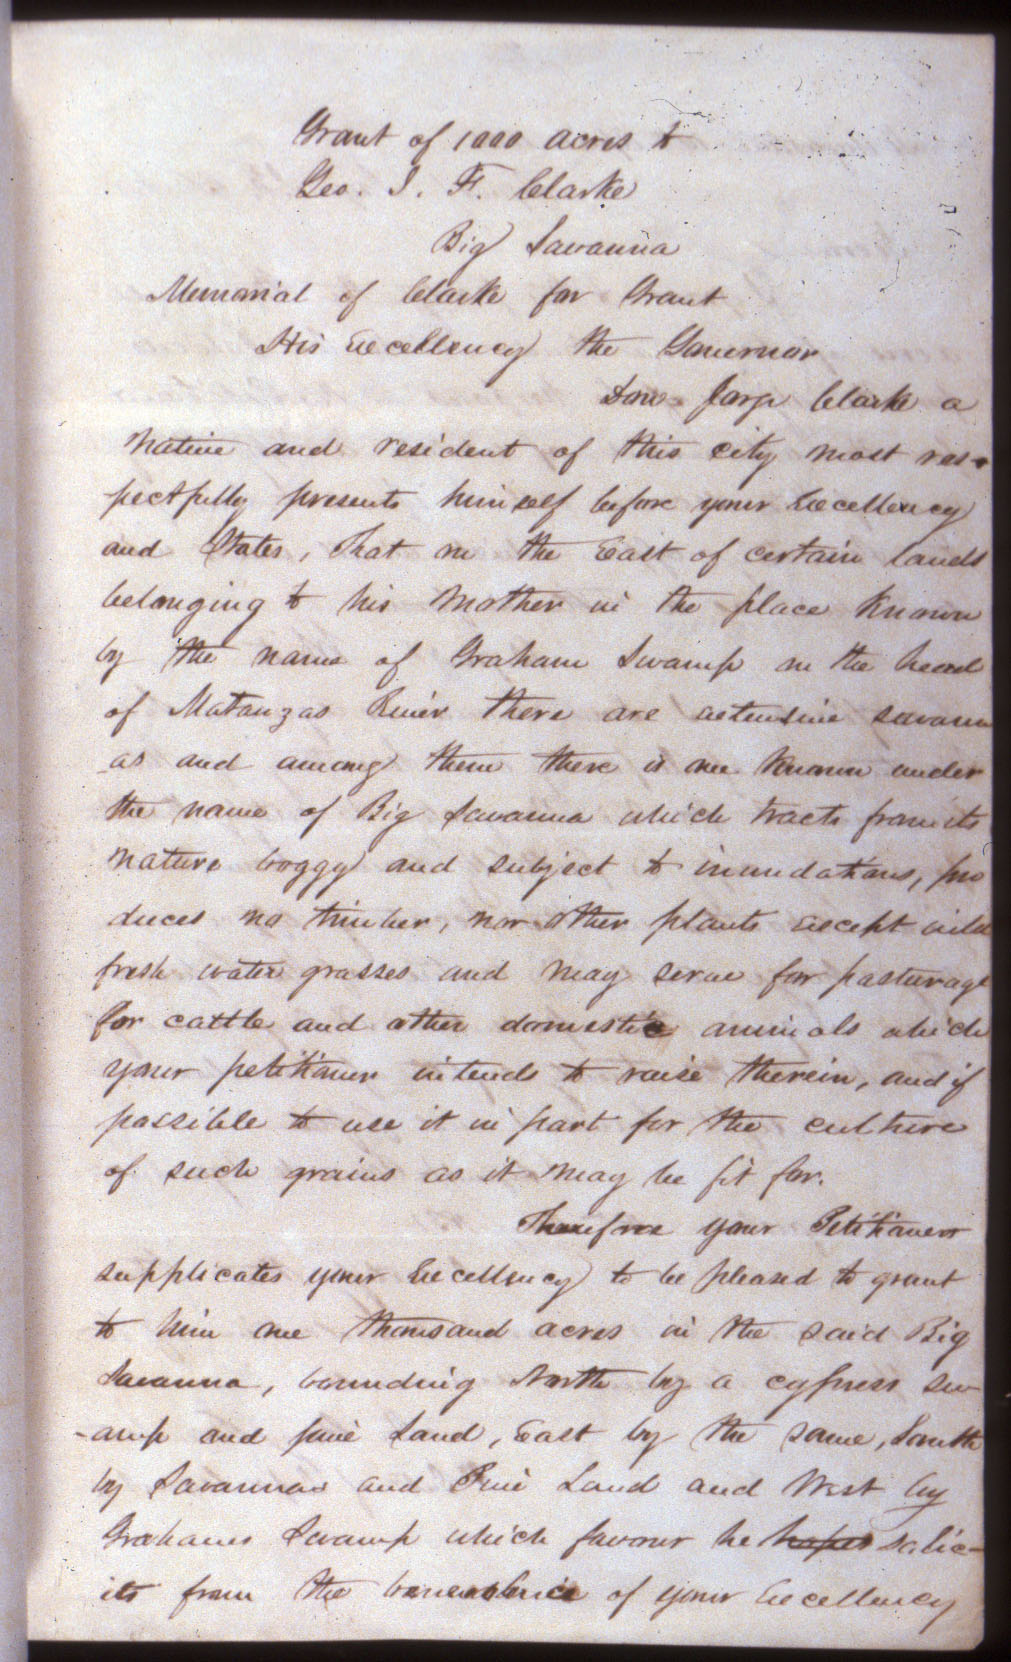 Grant of 1000 acres to
Geo. J. F. Clarke
Big Savanna
Memorial of Clarke for Grant
His Excellency the Governor
Don Jorge Clarke a
native and resident of this city most res-
pectfully presents himself before your Excellency
and States, That on the East of certain lands
belonging to his Mother in the place Known
by the name of Graham Swamp on the head
of Matanzas River there are extensive savann
-as and among them there is one Known under
the name of Big Savanna which tracts from its
nature boggy and subject to inundations, pro
duces no timber, nor other plants except wild
fresh water grasses and may serve for pasturage
for cattle and other domestic animals which
your petitioner intends to raise therein, and if
possible to use it in part for the culture
of such grains as it may be fit for.
Therefore your Petitioner
supplicates your Excellency to be pleased to grant
to him one thousand acres in the said Big
Savanna, bounding North by a cypress sw-
-amp and pine Land, East by the same, South
by Savannas and Pine Land and West by
Grahams Swamp which favour he hopes solic-
its from the benevolence of your Excellency